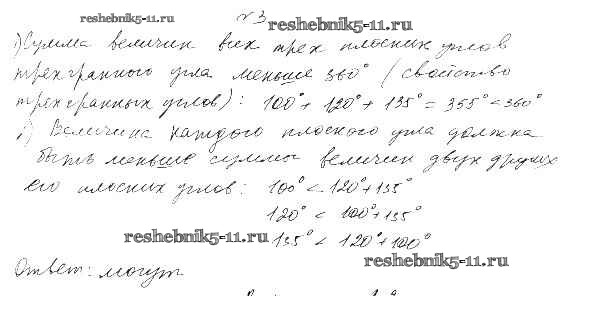 reshebnik5-11.ru
№3
reshebnik5-11.ru
1) Сумма величин всех трех плоских углов
трехгранного угла меньше 360° (свойство
трехгранных углов): 100°+ 120°+ 135° = 355° < 360°
2) Величина каждого плоского угла должна
быть меньше суммы величин двух других
его плоских углов: 100° < 120°+135°
120° < 100°+135°
reshebnik5-11.ru
135° < 120°+100°
reshebnik5-11.ru
Ответ: могут